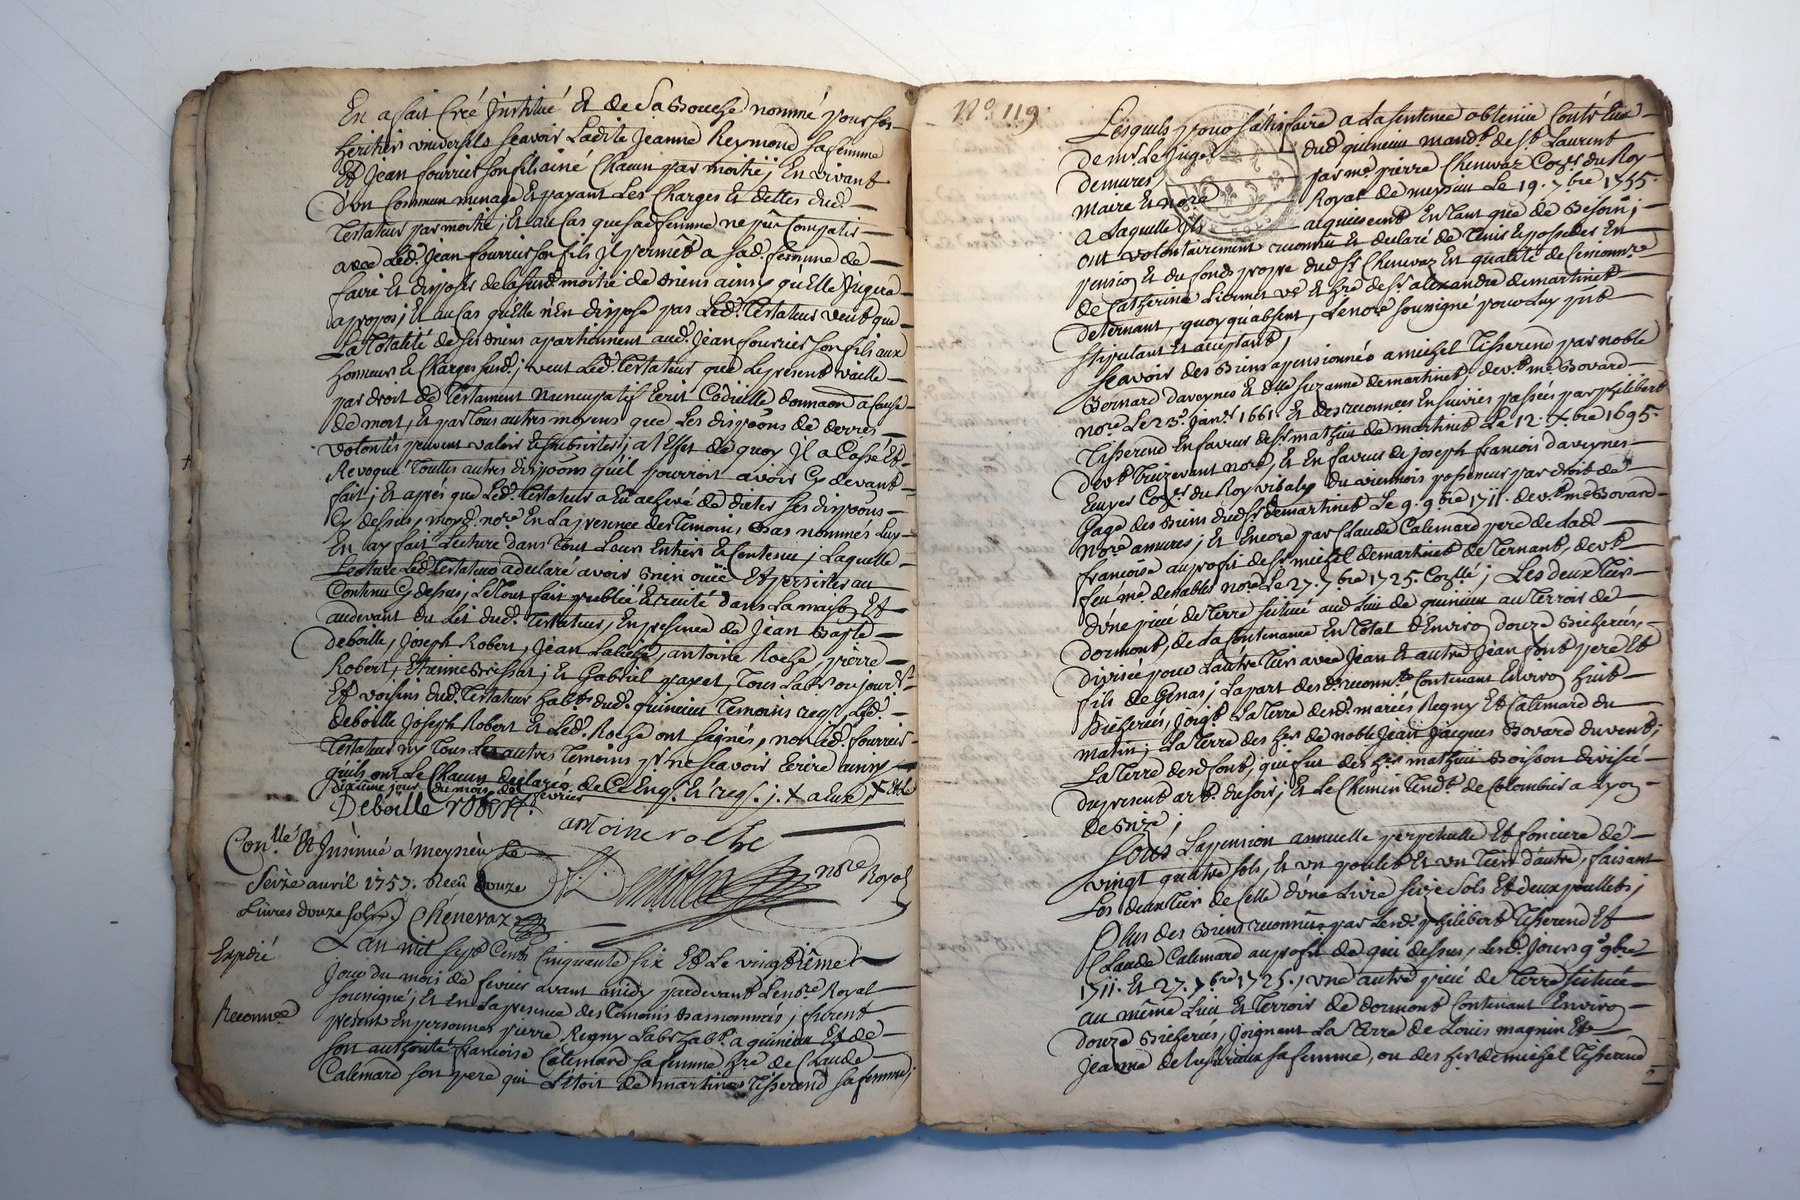 En a fait Créé Institué Et de Sa Bouche nommé pour ses
heritiers universels scavoir Ladite Jeanne Reymond sa femme
Et Jean fourrier son fils ainé Chacun par moitié; En vivant
d'un Commun menage Et payant Les Charges Et dettes dud.
Testateur par moitié; Et au cas que sad. femme ne pût Compatir
avec Led. Jean fourrier son fils Il permet a sad. femme de
faire Et disposer de lasusd. moitié de Biens ainsy qu'Elle Jugera
apropos; Et au cas qu'Elle n'En dispose pas Led. Testateur veut que
La Totalité de ses Biens apartiennent aud. Jean fourrier son fils aux
honneurs Et Charges susd.; veut Led. Testateur que Le present vaille
par droit de Testament Nuncupatif Ecrit Codicille donnaon a Cause
de mort, Et par Tous autres moyens que Les dispoons de derres
volontés peuvent valoir Et subsister; a l'Effet de quoy Il a Cassé Et
Revoqué Touttes autres dispoons qu'il pourroit avoir Cy devant
fait; Et aprés que Led. Testateur a Eu achevé de dicter ses dispoons
Cy dessus, moyd. nore En La presence des Temoins Bas nommés Luy
En ay fait Lecture dans Tout Leur Entier Et Contenu; Laquelle
Lecture Led. Testateur a declaré avoir Bien ouïe Et persister au
Contenu Cy dessus; Le Tout fait publié Et recité dans La maison Et
audevant du Lit dud. Testateur, En presence de Jean Bapte
deboille, Joseph Robert, Jean antoine Roche, pierre
Robert, Etienne Bressat; Et Gabriel payet, Tous Labrs ou jourrs
Et voisins dud. Testateur habts dud. quinieu Temoins reqs; Led.
deboille Joseph Robert Et Led. Roche ont signés, non Led. fourrier
Testateur ny Tous Les autres Temoins pr ne scavoir Ecrire ainsy
qu'ils ont Le Chacun declaré de Ce Enq. Et reqs.
dixieme jour du mois de fevrier
Deboille robert
antoine roche
Conllé Et Insinué a meyrieu Le
Seize avril 1757. Reçu douze
Livres douze sols Chénevaz
nore Royal
Expedié
L'an mil sept Cents Cinquante six Et Le vingtième
Jour du mois de fevrier avant midy pardevant Le nore Royal
soussigné; Et En La presence des Temoins Basnommés; furent
Reconnce
present En personnes pierre Regny Labr habt. a quinieu Et de
son authorité francoise Calemard sa femme hre de Claude
Calemard son pere qui L'étoit de martine Tisserend sa femme;
N.o 119.
Lesquels pour satisfaire a La sentence obtenüe Contr'Eux
de mr. Le Juge dud. quinieu mandt. de St. Laurent
demures par me. pierre Chenevaz Coner du Roy
Maire Et nore Royal de meyrieu Le 19. 7.bre 1755.
a Laquelle Ils acquiescent En Tant que de Besoin;
ont volontairement reconnû Et declaré de Tenir Et posseder En
pension Et du fonds propre dud. Sr. Chenevaz En qualité de Cessionnre
de Catherine Liornet ve Et hre de Sr. alexandre demartinet
deternant, quoy qu'absent, Le nore soussigné pour Luy put
stipulant Et acceptant;
Scavoir des Biens apensionnés a michel Tisserend par noble
Bernard daveynes Et dlle Suzanne demartinet, devt. me. Bovard
nore Le 23. Janr. 1661. Et des reconnces Ensuivies passées par philibert
Tisserend En faveur de Sr. mathieu de martinet Le 12. X.bre 1695.
devt. Truizevant nore, Et En faveur de joseph francois daveynes
Ecuyer Coner du Roy vibaly du viennois possesseur par droit de
Gage des Biens dud. Sr. demartinet Le 9. 9.bre 1711. devt. me Bovard
nore amures; Et Encore par Claude Calemard pere de lade
francoise au profit de Sr. michel demartinet de Ternant, devt.
feu me. denables nore Le 27. 7.bre 1725. Conllé; Les deux Tiers
d'une piece de Terre scituée aud. Lieu de quinieu au Terroir de
dormont, de La Contenance En Total d'Environ douze Bicherées,
divisée pour L'autre Tiers avec Jean Et autre Jean font pere Et
fils de Genas; La part desd. reconnts Contenant Environ huit
Bicherées, Joigt. La Terre desd. mariés Regny Et Calemard du
matin; La Terre des hrs de noble Jean Jacques Bovard du vent;
La Terre desd. font, qui fut des hrs mathieu Boisson divisée
du present art. du soir; Et Le Chemin Tendt. de Colombier a Lyon
de Bize;
Sous La pension annuelle perpetuelle Et fonciere de
vingt quatre sols, Et un poulet Et un Tiers d'autre, faisant
Les deux Tiers de Celle d'une Livre seize sols Et deux poullets;
Plus des Biens reconnus par Lesd. philibert Tisserend Et
Claude Calemard au profit de qui dessus, Lesd. Jours 9.e 9bre
1711. Et 27. 7.bre 1725.; une autre piece de Terre scituée
au même Lieu Et Terroir de dormont Contenant Environ
douze Bicherées, Joignant La Terre de Louis magnin Et
Jeanne sa femme, ou des hrs de michel Tisserend